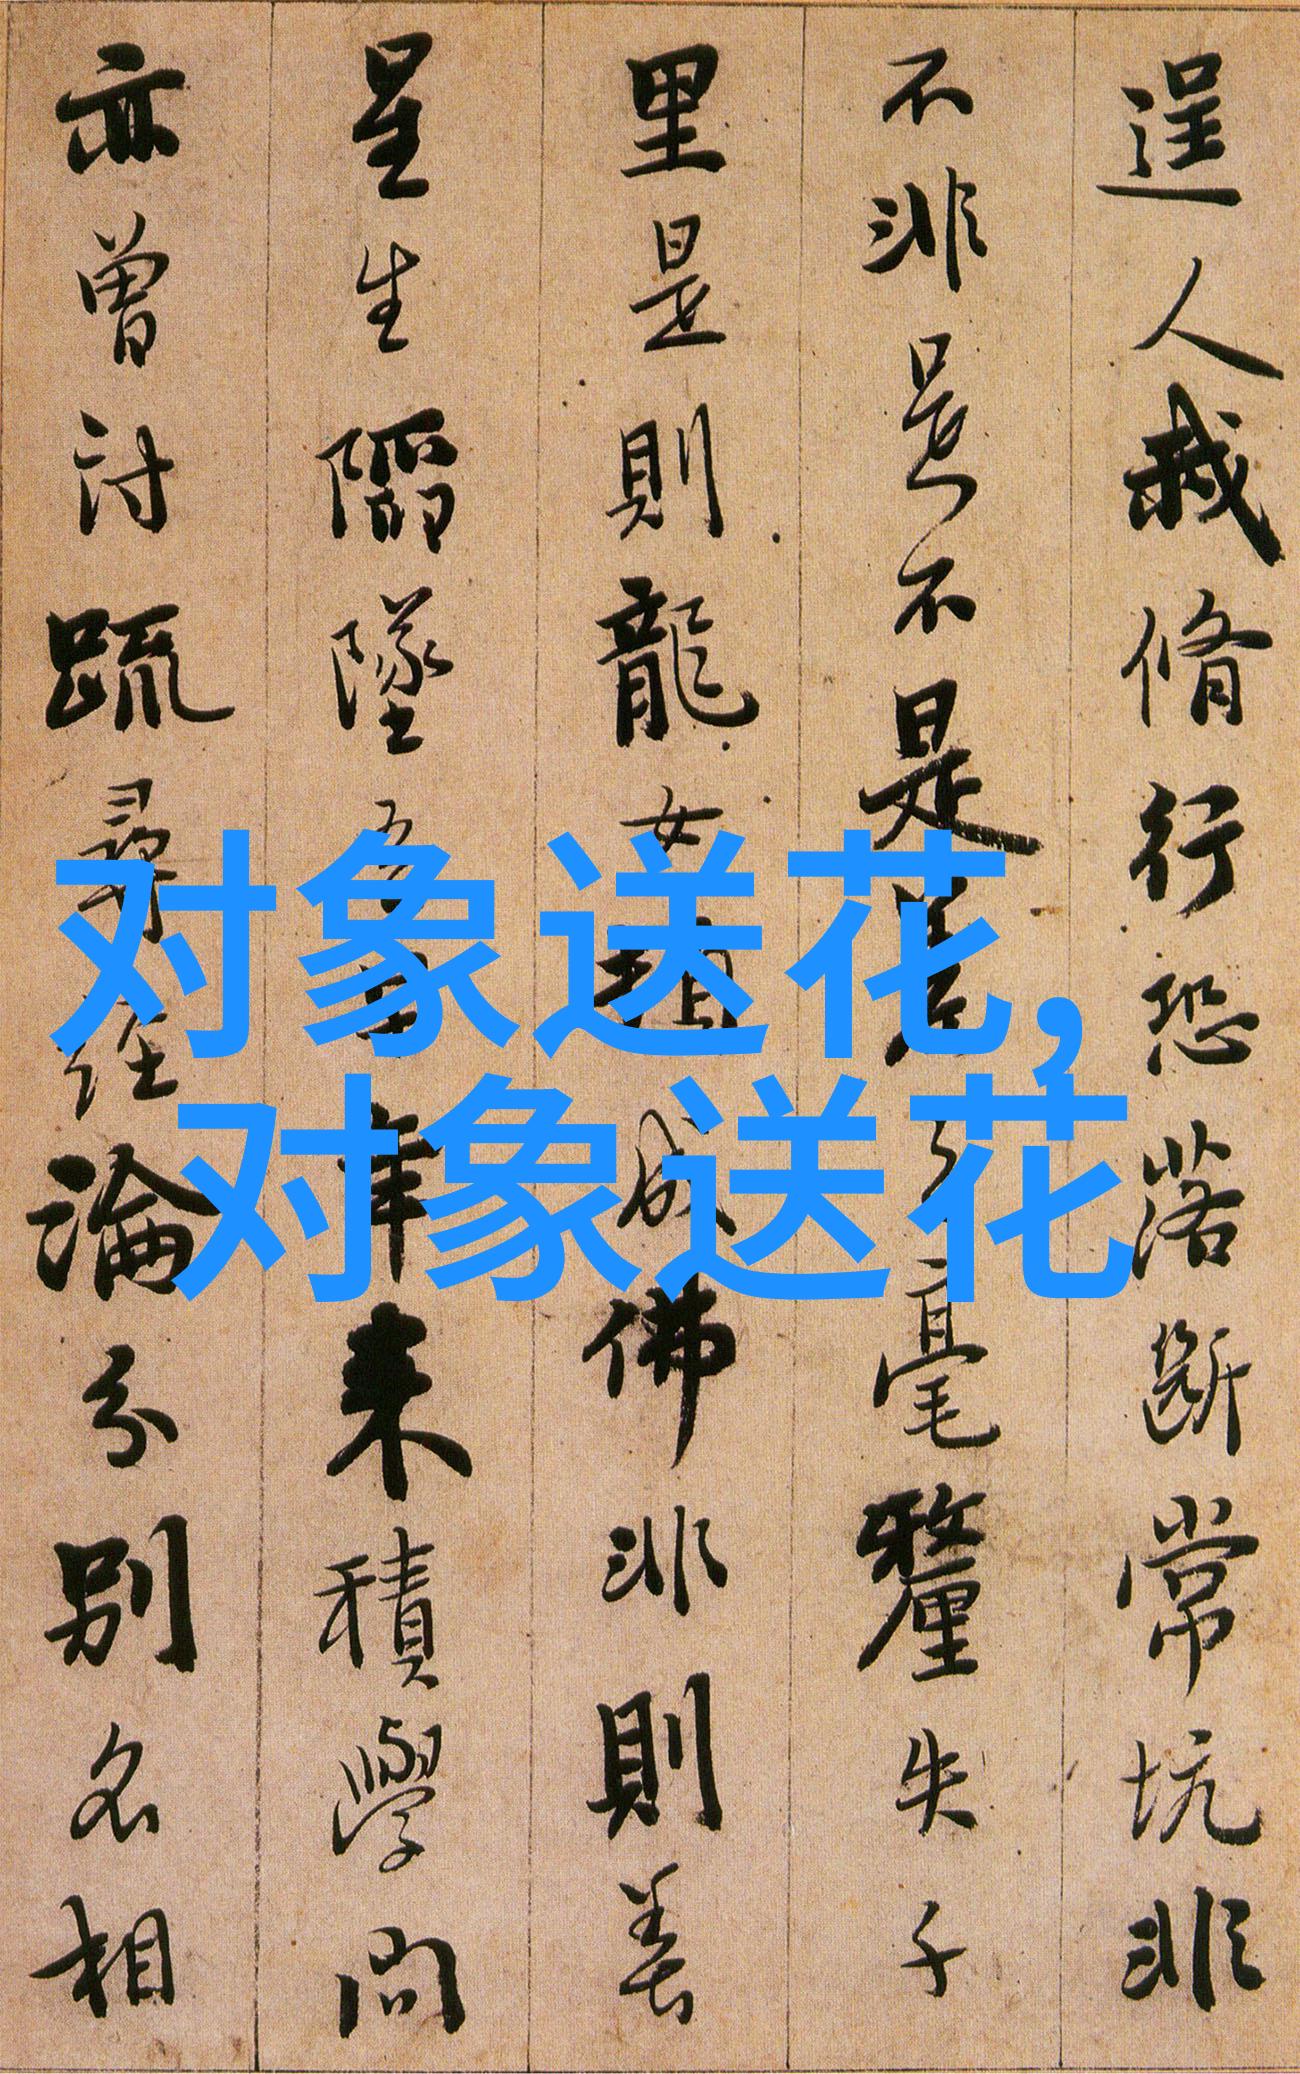 逞人我脩行恐落斷常坑非
不非是不是差之毫釐失千
里是則龍女頓成佛非則善
星生陷墜吾早年來積學問
亦曾討疏尋經論分別名相
对象送花,
对象送花